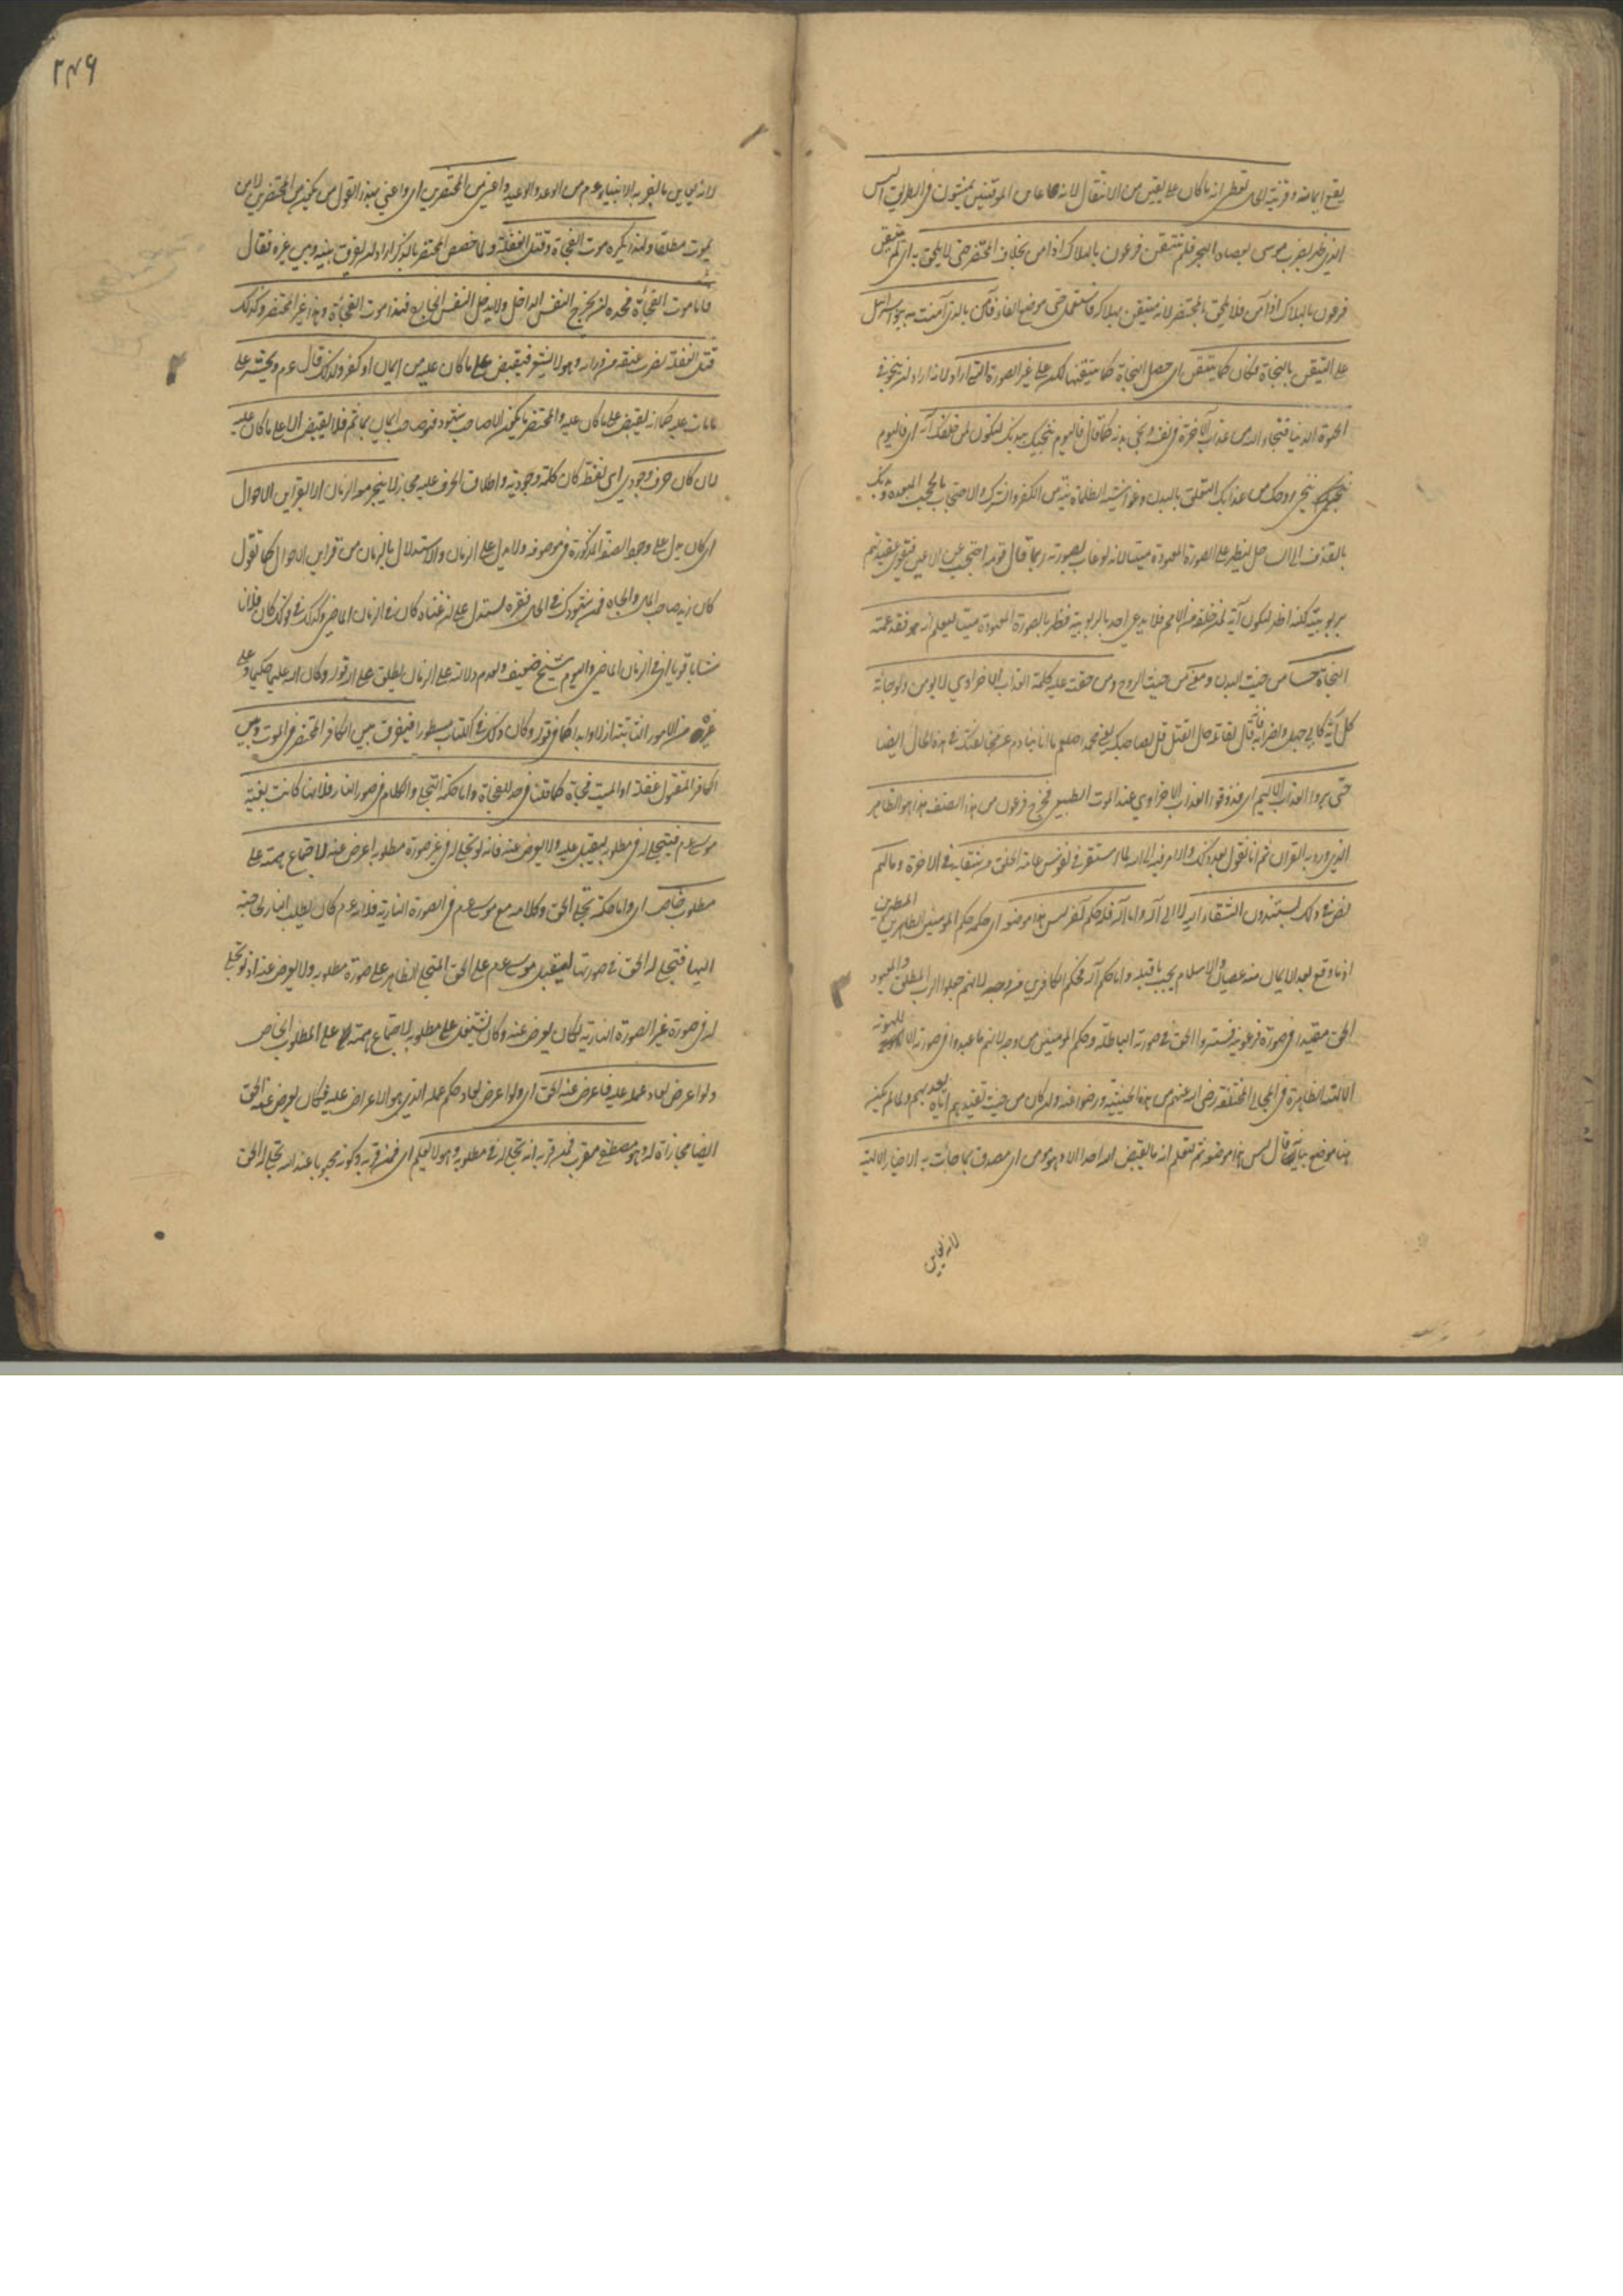 يقع ايمانه وقرينة الحال تعطي انه ما كان على يقين من الانتقال لانه عاين المؤمنين يمشون في الطريق اليبس
الذي ظهر بضرب موسى بعصاه البحر فلم يتيقن فرعون بالهلاك اذا آمن بخلاف المحتضر حتى لا يلحق به اي لم يتيقن
فرعون بالهلاك اذ آمن فلا يلحق بالمحتضر لانه متيقن بهلاكه فاستعمل حتى موضع الفاء فآمن بالذي آمنت به بنو اسرائيل
على التيقن بالنجاة فكان كما تيقن اي حصل النجاة كما تيقنها لكن على غير الصورة التي اراد لانه اراد ان ينجو في
الحيوة الدنيا فنجاه الله من عذاب الآخرة في نفسه ونجى بدنه كما قال فاليوم ننجيك ببدنك لتكون لمن خلفك آية اي فاليوم
ننجيك ننجي روحك من عذابك المتعلق بالبدن وغواشيه الظلمانية من الكفر والشرك والاحتجاب بالحجب المبعدة وبدنك
بالقذف الى الساحل ليظهر على الصورة المعهودة ميتا لانه لو غاب بصورته ربما قال قومه احتجب عن الاعين فيقوى عقيدتهم
بربوبيته لكنه اظهر لتكون آية لمن خلفه من الامم فلا يدعي احد بالربوبية فظهر بالصورة المعهودة ميتا ليعلم انه هو فقد عمته
النجاة حسا من حيث البدن ومعنى من حيث الروح ومن حقت عليه كلمة العذاب الاخراوي لا يؤمن ولو جاءته
كل آية كابي جهل واضرابه فانه قال لقاتله حال القتل قل لصاحبك يعني محمدا صلعم ما انا بنادم عن مخالفتك في هذه الحال ايضا
حتى يروا العذاب الاليم اي يذوقوا العذاب الاخراوي عند الموت الطبيعي فخرج فرعون من هذا الصنف هذا هو الظاهر
الذي ورد به القرآن ثم انا نقول بعد ذلك والامر فيه الى الله لما استقر في نفوس عامة الخلق من شقائه في الآخرة وما لهم
نص في ذلك يستندون الشقاء اليه لا الى آله واما آله فله حكم آخر ليس هذا موضعه اي حكمه حكم المؤمنين الطاهرين المطهرين
اذ ما وقع بعد الايمان منه عصيان والاسلام يجب ما قبله واما حكم آله فحكم الكافرين من وجه لانهم جعلوا الرب المطلق والمعبود
الحق مقيدا في صورة فرعونية فستروا الحق في صورته الباطلة وحكم المؤمنين من وجه لانهم ما عبدوا في صورته الا للهوية
الالهية الظاهرة في المجالي المختلفة رضي الله عنهم من هذه الحيثية ورضوا عنه ولو كان من حيث تقييدهم اياه يعذبهم ولما لم يكن
هنا موضع بيانه قال ليس هذا موضعه ثم لتعلم انه ما يقبض الله احدا الا وهو مؤمن اي مصدق بما جاءت به الاخبار الالهية
لانه يعاين
٢٤٦
لانه يعاين ما اخبر به الانبياء عم من الوعد والوعيد واعني من المحتضرين اي واعني بهذا القول من يكون من المحتضرين لا من
يموت مطلقا ولهذا يكره موت الفجاءة وقتل الغفلة ولما خصص المحتضر بالذكر اراد ان يفرق بينه وبين غيره فقال
فاما موت الفجاءة فحده ان يخرج النفس الداخل ولا يدخل النفس الخارج فهذا موت الفجاءة وهذا غير المحتضر وكذلك
قتل الغفلة بضرب عنقه من ورائه وهو لا يشعر فيقبض على ما كان عليه من ايمان او كفر ولذلك قال عم ويحشر على
ما مات عليه كما انه يقبض على ما كان عليه والمحتضر ما يكون الا صاحب شهود فهو صاحب ايمان بما ثم فلا يقبض الا على ما كان عليه
لان كان حرف وجودي اي لفظة كان كلمة وجودية واطلاق الحرف عليه مجاز لا ينجر معه الزمان الا بقراين الاحوال
اي كان يدل على وجود الصفة المذكورة في موصوفه ولا يدل على الزمان والاستدلال بالزمان من قراين الاحوال كما تقول
كان زيد صاحب المال والجاه فمن شهودك في الحال فقره تستدل على ان غناه كان في الزمان الماضي وكذلك في قولك كان فلان
شابا قويا اي في الزمان الماضي واليوم شيخ ضعيف ولعدم دلالته على الزمان يطلق على الله في قوله وكان الله عليما حكيما وعلى
غيره من الامور الثابتة ازلا وابدا كما في قوله وكان ذلك في الكتاب مسطورا فيفرق بين الكافر المحتضر في الموت وبين
الكافر المقتول غفلة او الميت فجاءة كما قلنا في حد الفجاءة واما حكمة التجلي والكلام في صورة النار فلانها كانت بغية
موسى عم فتجلى له في مطلوبه ليقبل عليه ولا يعرض عنه فانه لو تجلى له في غير صورة مطلوبه اعرض عنه لاجتماع همته على
مطلوب خاص اي واما حكمة تجلي الحق وكلامه مع موسى عم في الصورة النارية فلانه عم كان يطلب النار لحاجته
اليها فتجلى له الحق في صورتها ليقبل موسى عم على الحق المتجلي الظاهر على صورة مطلوبه ولا يعرض عنه اذ لو تجلى
له في صورة غير الصورة النارية لكان يعرض عنه وكان يشتغل على مطلوبه لاجتماع همته على المطلوب الخاص
ولو اعرض لعاد عمله عليه فاعرض عنه الحق اي ولو اعرض لعاد حكم عمله الذي هو الاعراض عليه فكان يعرض عنه الحق
ايضا مجازاة له وهو مصطفى مقرب فمن قربه انه تجلى له في مطلوبه وهو لا يعلم اي فمن قربه وكونه محبوبا عند الله تجلى له الحق